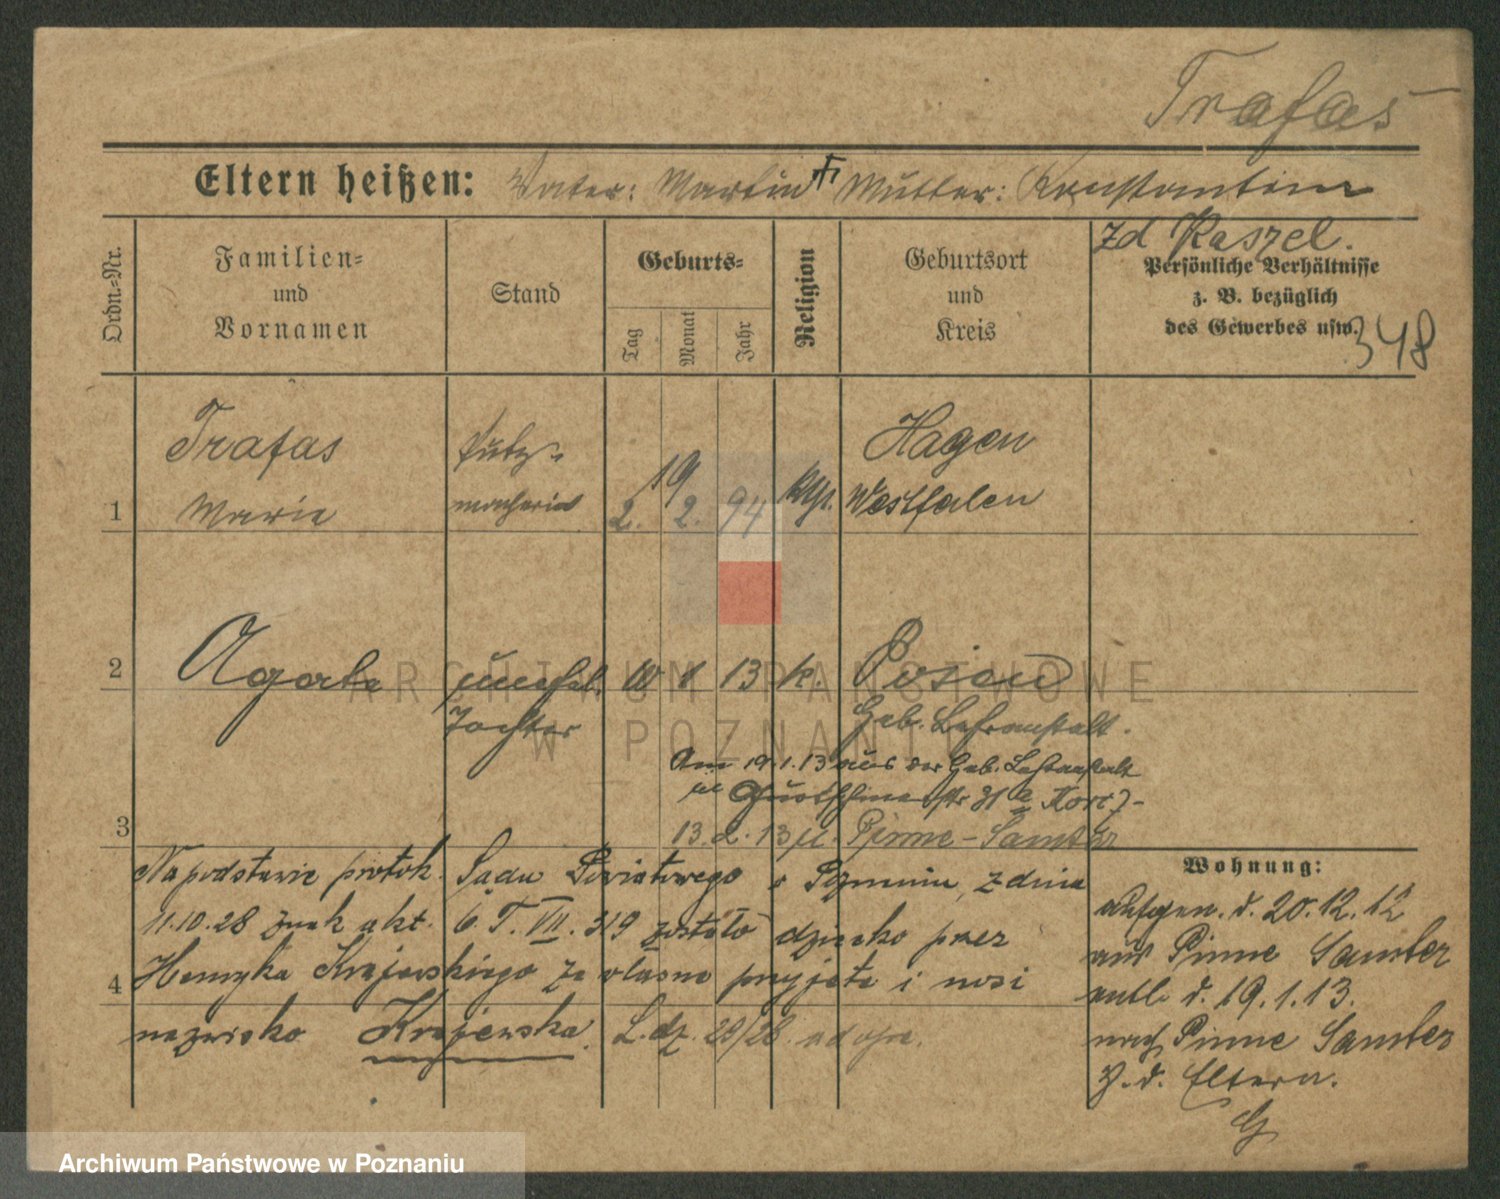 Trafas
Eltern heißen: Vater: Martin Mutter: Konstantine
zd Kaszel.
Ordn.-Nr.
Familien- und Vornamen
Stand
Geburts-
Tag Monat Jahr
Religion
Geburtsort und Kreis
Persönliche Verhältnisse
z. B. bezüglich
des Gewerbes usw.
348
Trafas Putz- Hagen
1 Marie macherin 2. 2. 94 Kth. Westfalen
19
2 Agate unehel. 10 1 13 k. Posen
Tochter Geb. Lehranstalt.
Am 19.1.13 aus der Geb. Lehranstalt
31
3 13.2.13 n. Pinne-Samter
Na podstawie protok. Sądu Powiatowego w Poznaniu z dnia
11.10.28 znak akt. 6. T. VII. 319 zostało dziecko przez
4 Henryka Krajewskiego za własne przyjęte i nosi
nazwisko Krajewska. L. dz. 29/28
Wohnung:
aufgen. d. 20.12.12
aus Pinne Samter
entl. d. 19.1.13.
nach Pinne Samter
z. d. Eltern.
ARCHIWUM PAŃSTWOWE
W POZNANIU
Archiwum Państwowe w Poznaniu